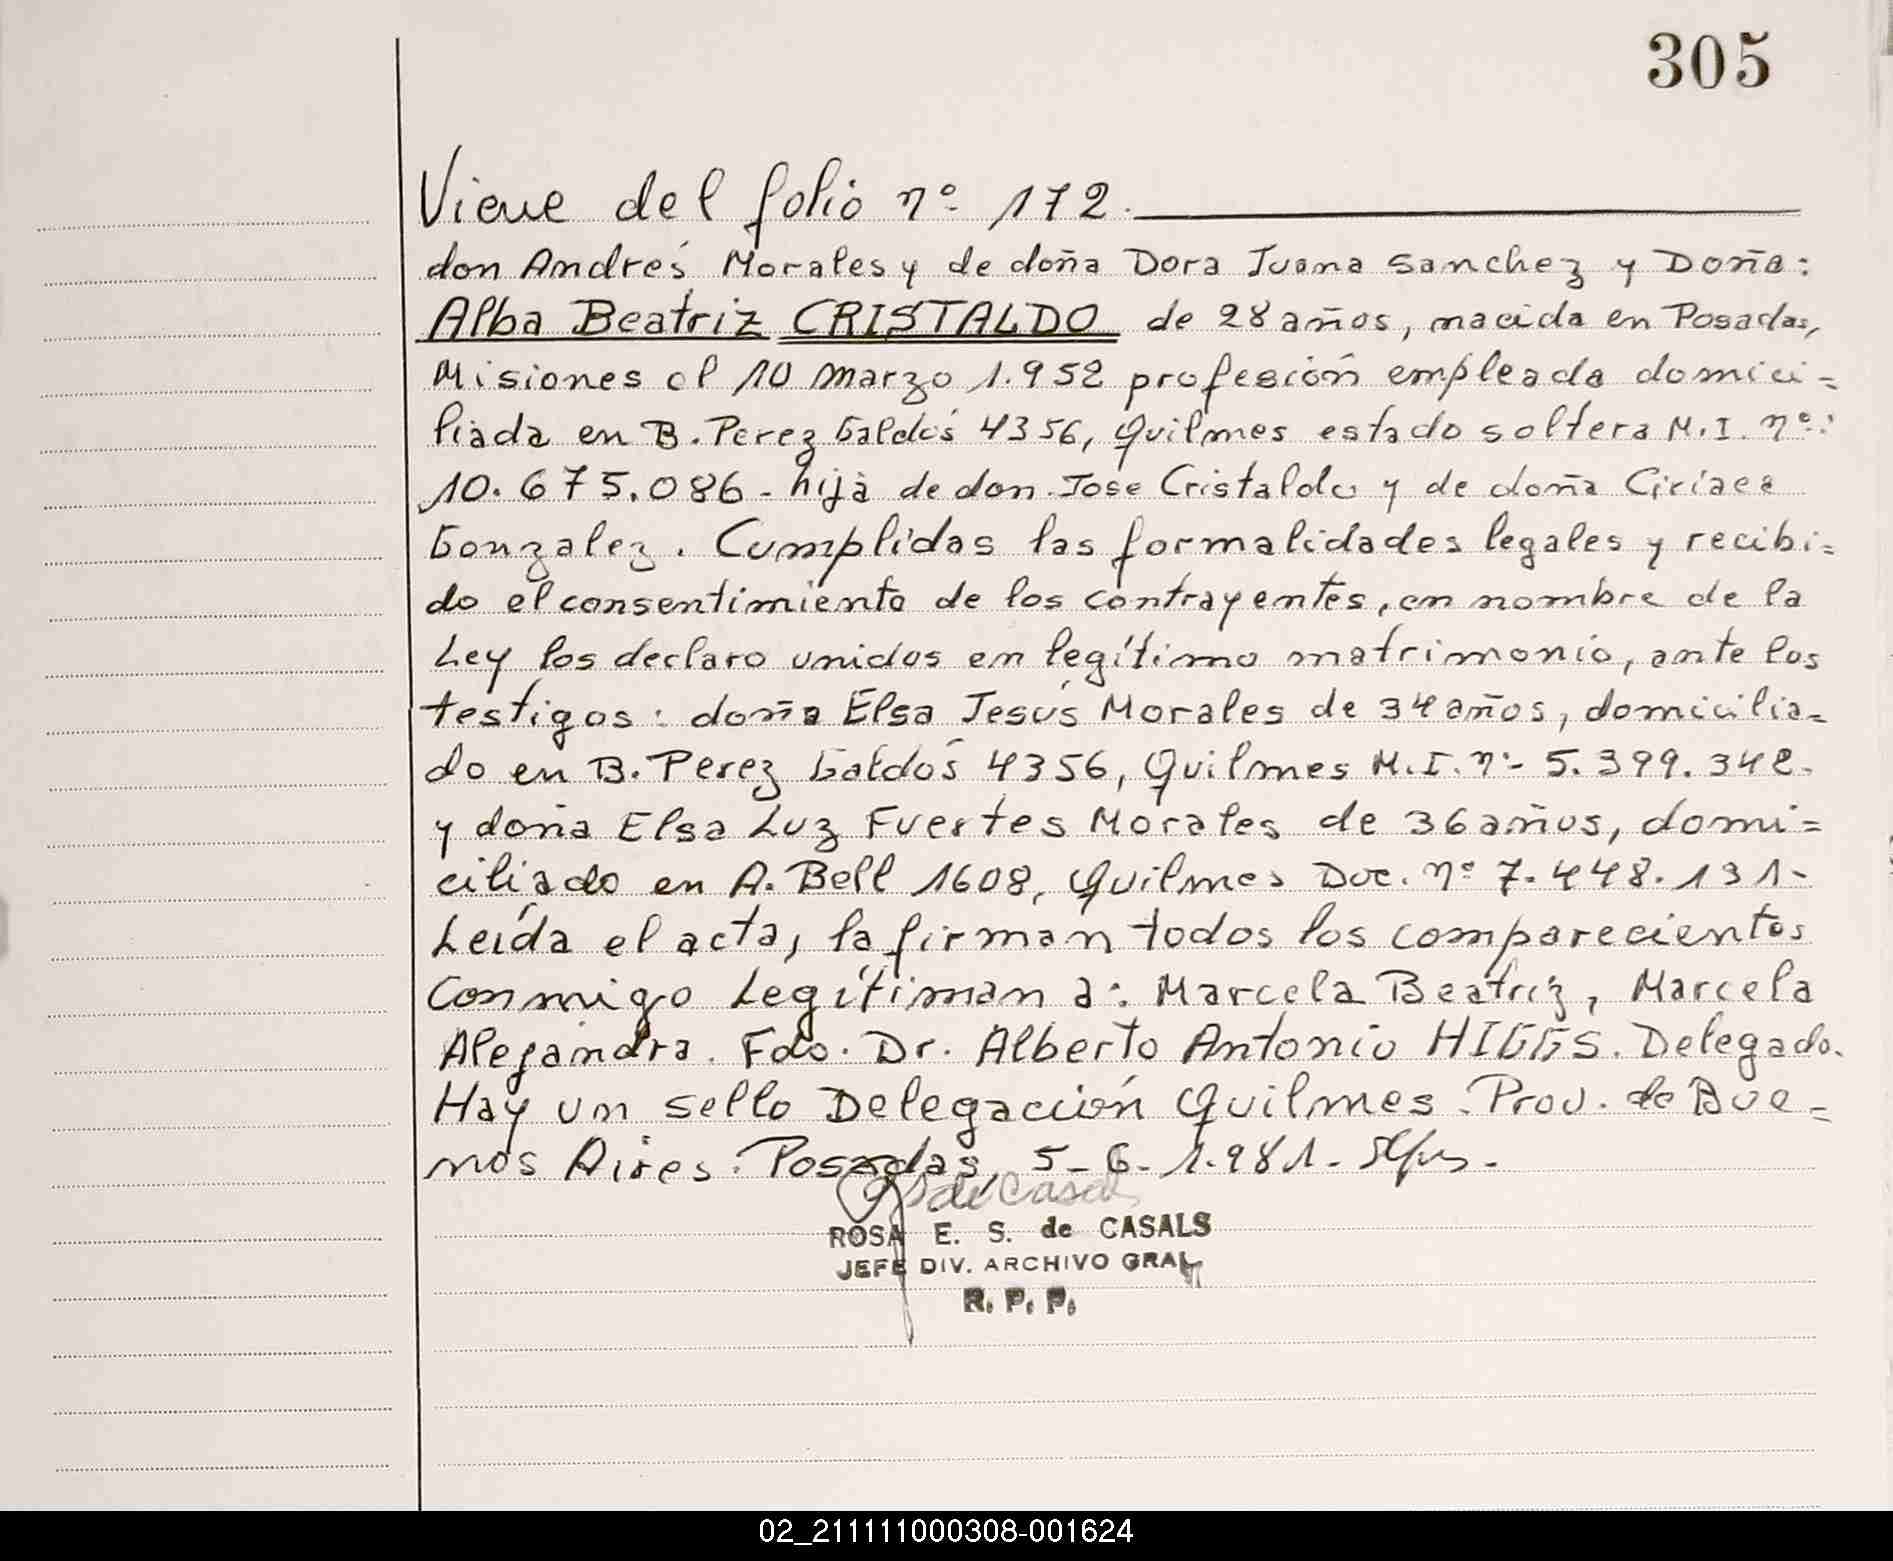 305
Viene del folio nº 172.
don Andrés Morales y de doña Dora Juana Sanchez y Doña:
Alba Beatriz CRISTALDO de 28 años, nacida en Posadas,
Misiones el 10 marzo 1.952 profesión empleada domici=
liada en B. Perez Galdós 4356, Quilmes estado soltera M.I. nº:
10.675.086- hija de don Jose Cristaldo y de doña Ciriaca
Gonzalez. Cumplidas las formalidades legales y recibi=
do el consentimiento de los contrayentes, en nombre de la
Ley los declaro unidos en legítimo matrimonio, ante los
testigos: doña Elsa Jesús Morales de 34 años, domicilia=
do en B. Perez Galdós 4356, Quilmes M.I. nº 5.399.342-
y doña Elsa Luz Fuertes Morales de 36 años, domi=
ciliado en A. Bell 1608, Quilmes Doc. nº 7.448.131-
Leída el acta, la firman todos los comparecientes
Conmigo Legítiman a: Marcela Beatriz, Marcela
Alejandra. Fdo. Dr. Alberto Antonio HIGGS. Delegado.
Hay un sello Delegación Quilmes. Prov. de Bue=
nos Aires. Posadas, 5-6-1.981-
de Casals
ROSA E. S. de CASALS
JEFE DIV. ARCHIVO GRAL
R. P. P.
02_211111000308-001624